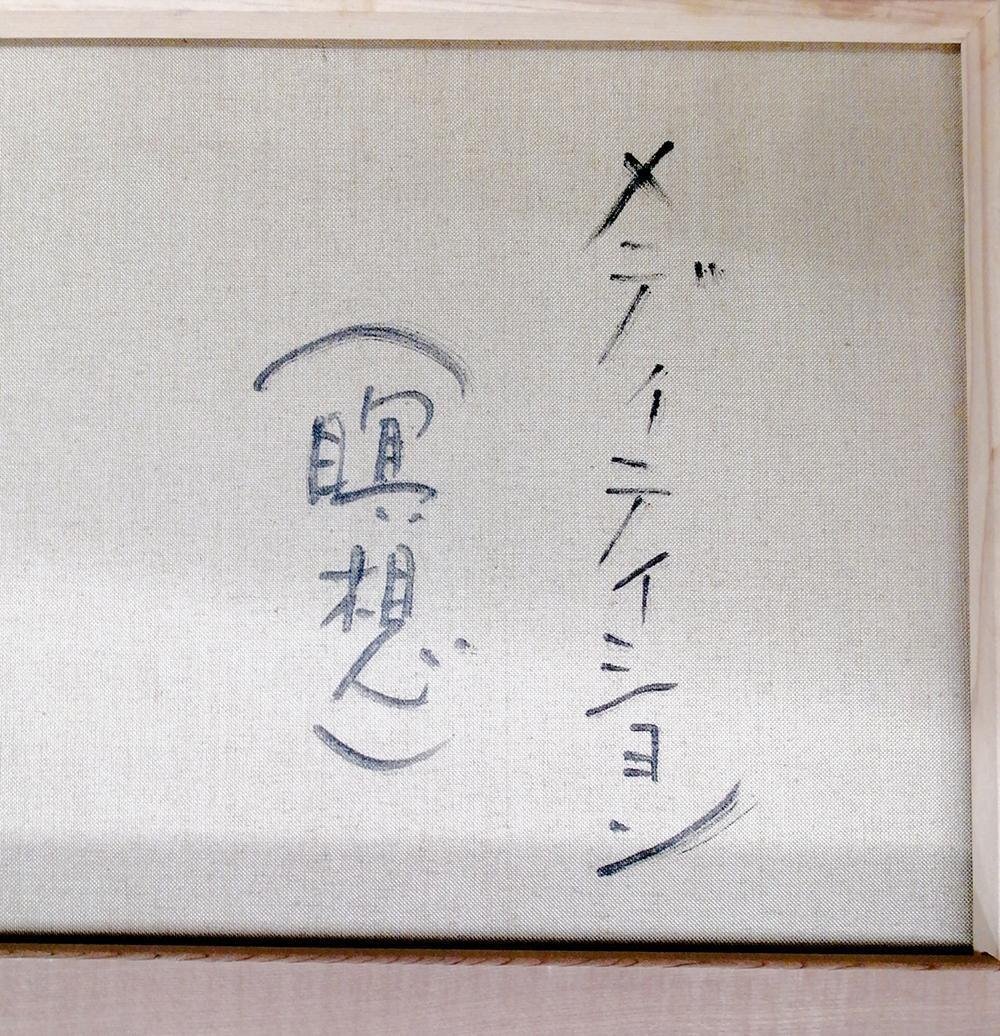 メディテイション
(瞑想)